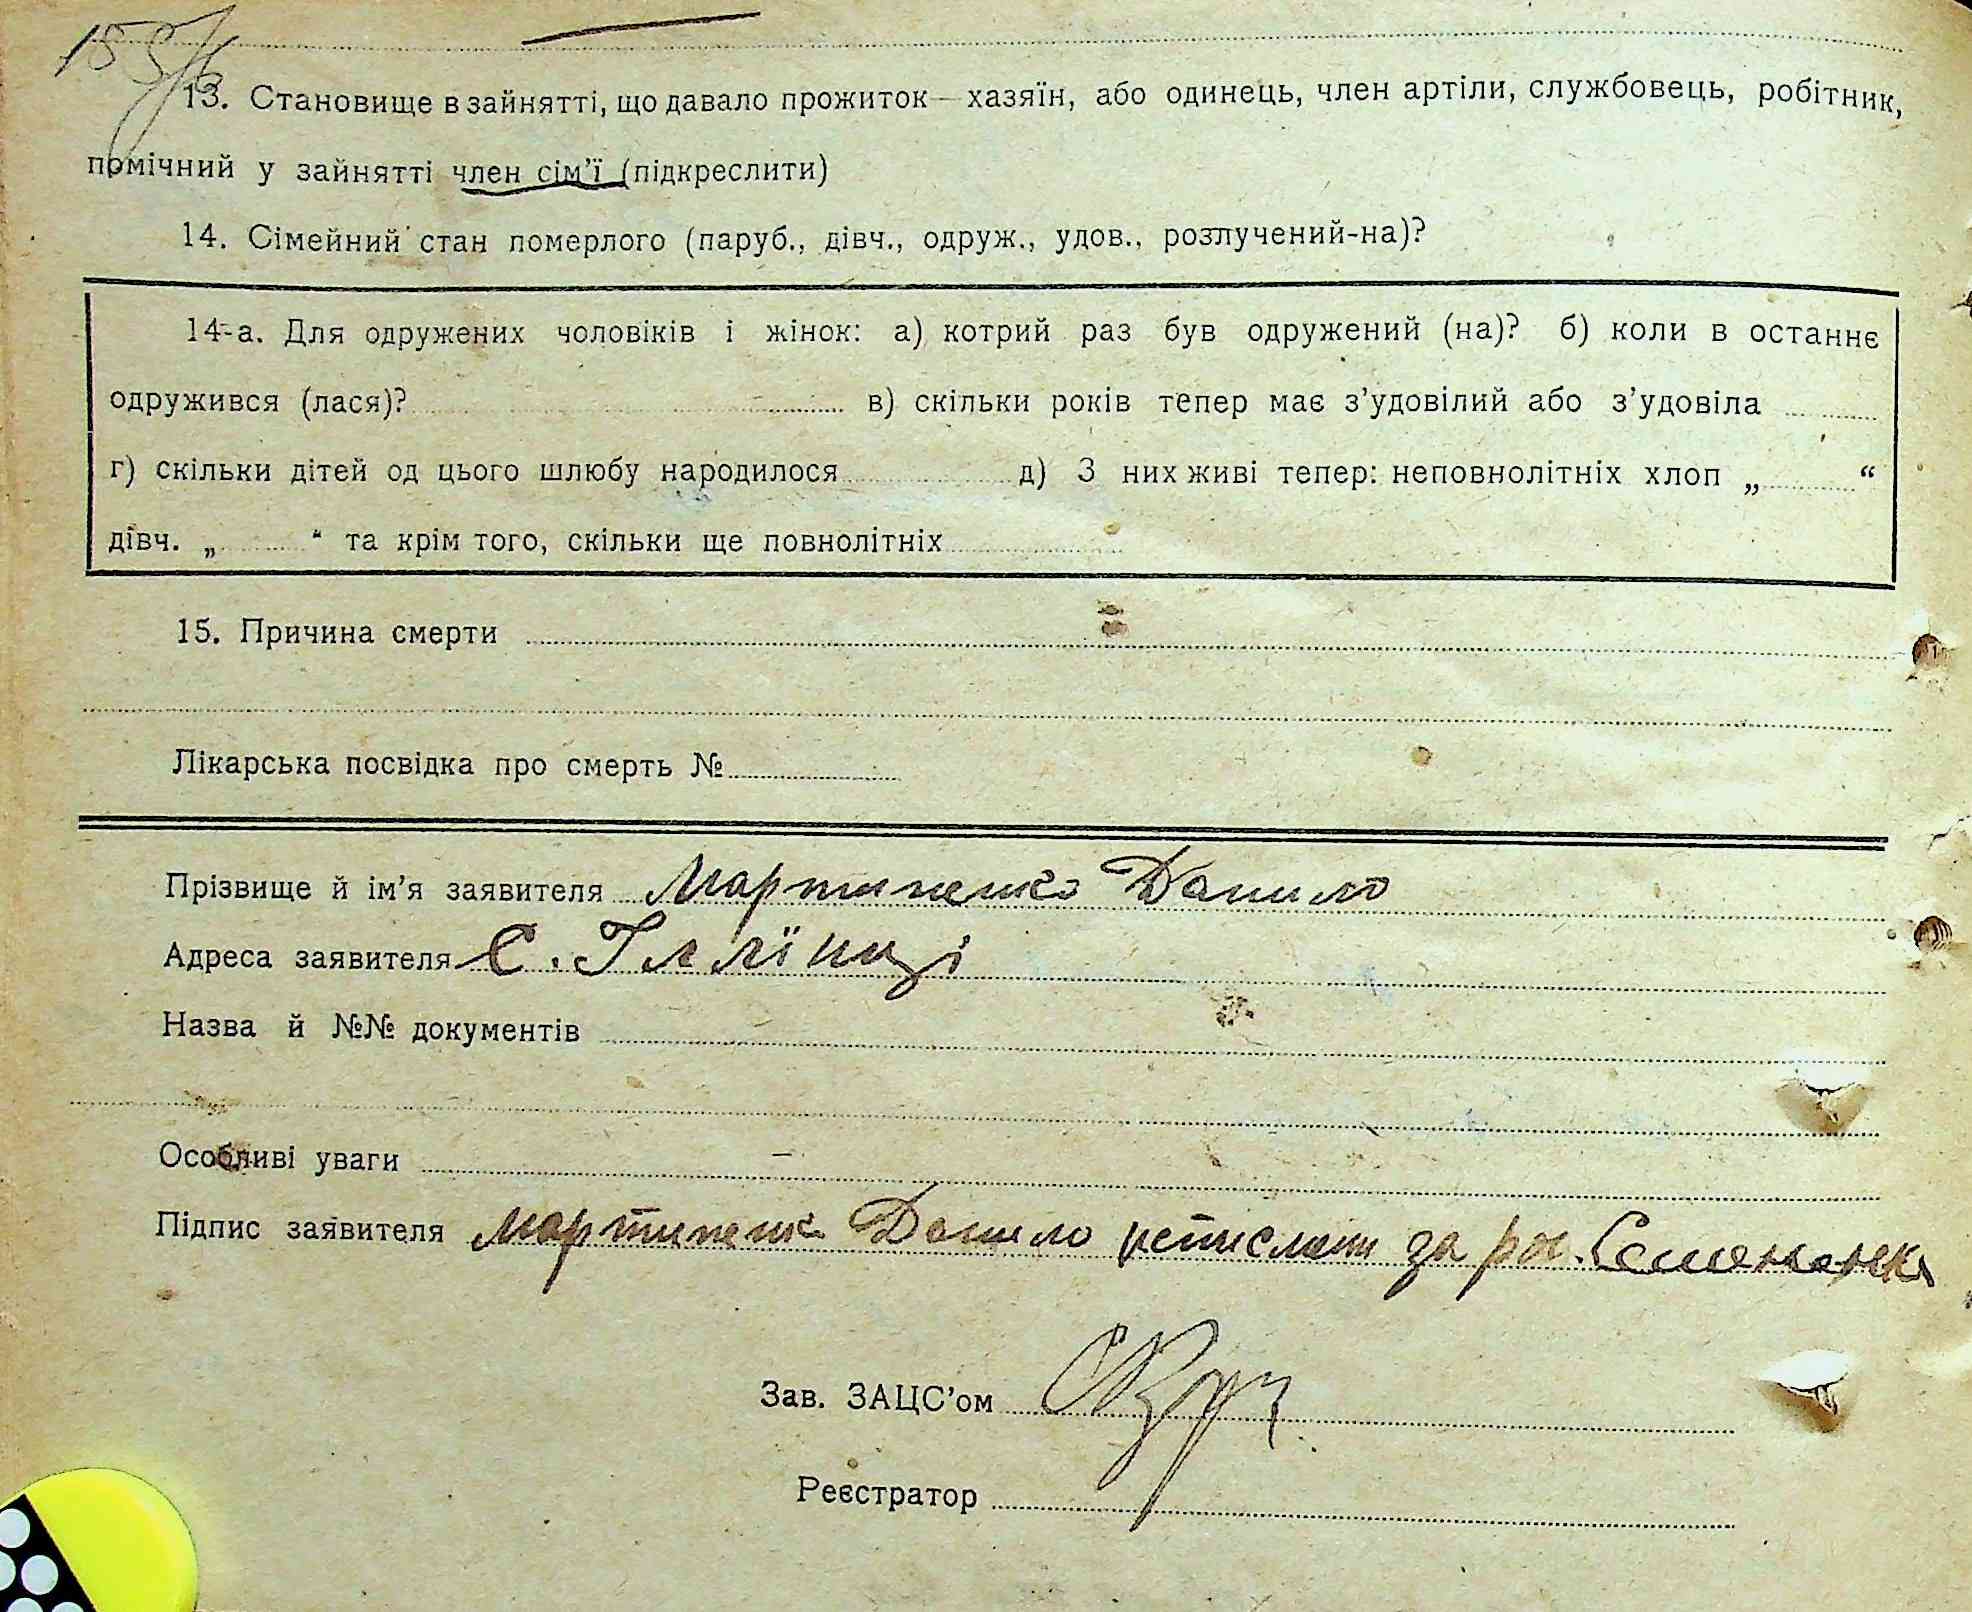 13. Становище в зайнятті, що давало прожиток — хазяїн, або одинець, член артіли, службовець, робітник,
помічний у зайнятті член сім’ї (підкреслити)
14. Сімейний стан померлого (паруб., дівч., одруж., удов., розлучений-на)?
14-а. Для одружених чоловіків і жінок: а) котрий раз був одружений (на)? б) коли в останнє
одружився (лася)? в) скільки років тепер має з’удовілий або з’удовіла
г) скільки дітей од цього шлюбу народилося д) З них живі тепер: неповнолітніх хлоп „ “
дівч. „ “ та крім того, скільки ще повнолітніх
15. Причина смерти
Лікарська посвідка про смерть №
Прізвище й ім’я заявителя Мартиненко Данило
Адреса заявителя С. Іллінці
Назва й №№ документів
Особливі уваги –
Підпис заявителя Мартиненко Данило за
Зав. ЗАЦС’ом
Реєстратор